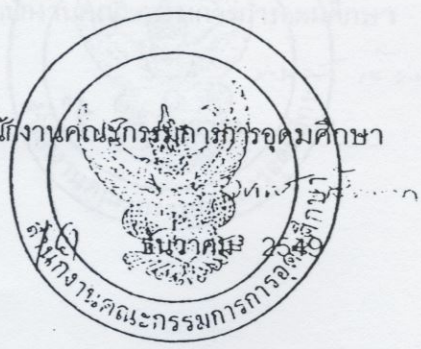 นักงานคณะกรรมการการอุดมศึกษา
ธันวาคม 2549
สำนักงานคณะกรรมการการอุดมศึกษา